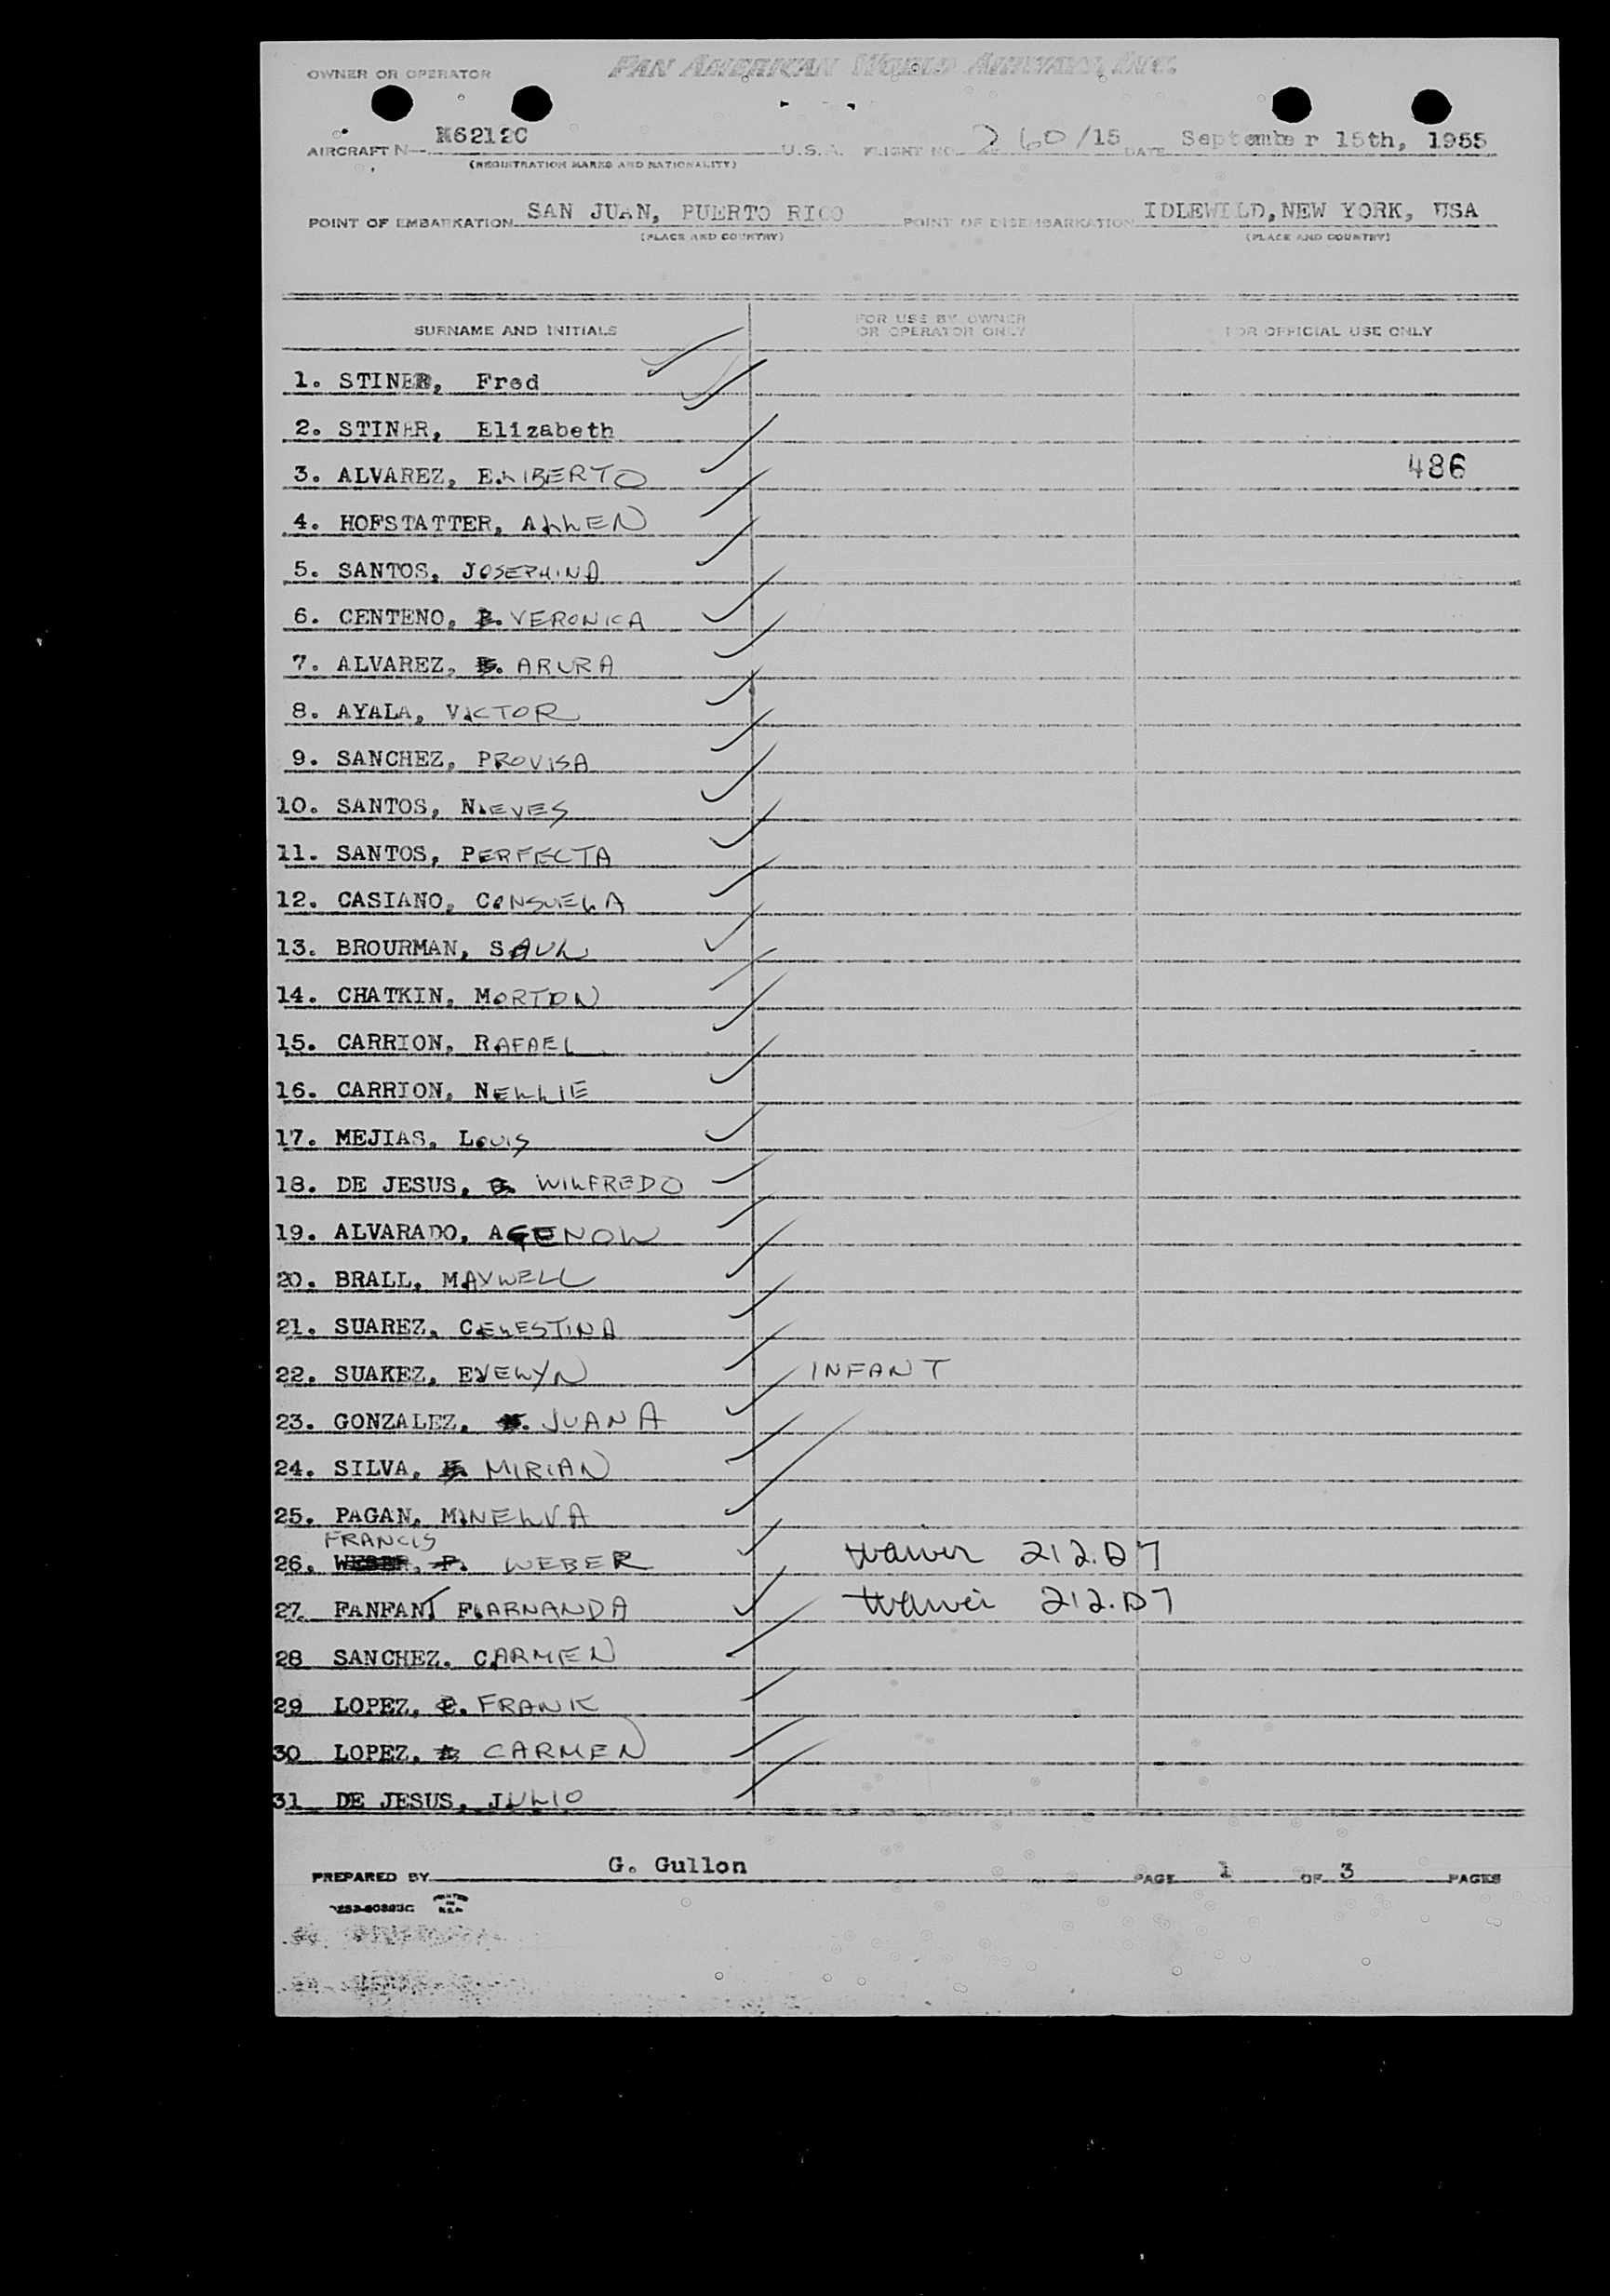 OWNER OR OPERATOR PAN AMERICAN WORLD AIRWAYS, INC.
AIRCRAFT N— N6212C U.S.A. FLIGHT NO. 260/15 DATE September 15th, 1955
(REGISTRATION MARKS AND NATIONALITY)
POINT OF EMBARKATION SAN JUAN, PUERTO RICO POINT OF DISEMBARKATION IDLEWILD, NEW YORK, USA
(PLACE AND COUNTRY) (PLACE AND COUNTRY)
SURNAME AND INITIALS FOR USE BY OWNER OR OPERATOR ONLY FOR OFFICIAL USE ONLY
1. STINER, Fred
2. STINER, Elizabeth
3. ALVAREZ, ELIBERTO 486
4. HOFSTATTER, ALLEN
5. SANTOS, JOSEPHINA
6. CENTENO, VERONICA
7. ALVAREZ, ARURA
8. AYALA, VICTOR
9. SANCHEZ, PROVISA
10. SANTOS, NIEVES
11. SANTOS, PERFECTA
12. CASIANO, CONSUELA
13. BROURMAN, SAUL
14. CHATKIN, MORTON
15. CARRION, RAFAEL
16. CARRION, NELLIE
17. MEJIAS, LOUIS
18. DE JESUS, WILFREDO
19. ALVARADO, AGENOW
20. BRALL, MAXWELL
21. SUAREZ, CELESTINA
22. SUAREZ, EVELYN INFANT
23. GONZALEZ, JUANA
24. SILVA, MIRIAN
25. PAGAN, MINELVA
FRANCIS
26. WEBER, F. WEBER 212.D7
27 FANFANT FLARNANDA 212.D7
28 SANCHEZ. CARMEN
29 LOPEZ, FRANK
30 LOPEZ, CARMEN
31 DE JESUS, JULIO
PREPARED BY G. Gullon PAGE 1 OF 3 PAGES
PRINTED IN U.S.A.